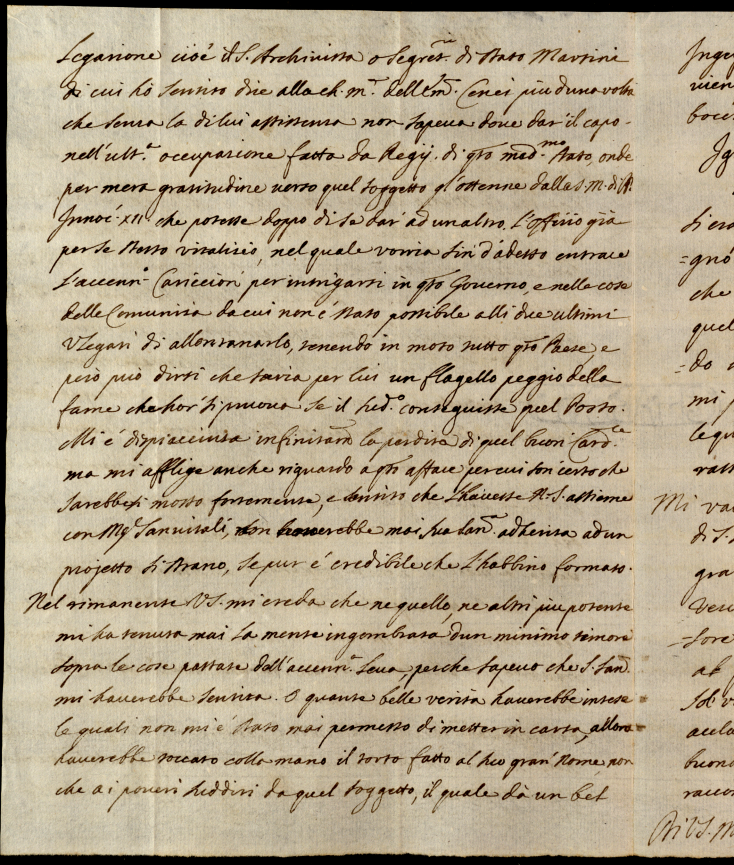 Legazione cioè il S. Archivista o Segret.rio di Stato Martini
di cui hò sentito dire alla ch. m.a dell'Em. Cenci più d'una volta
che senza la di lui assistenza non sapeva dove dar il capo
nell'ult.a occupazione fatta da Regij di q̃to med.mo Stato, onde
per mera gratitudine verso quel soggetto gl'ottenne dalla S. M. di
Innoc. XII che potesse doppo di se dar ad un altro l'offizio già
per se stesso vitalizio, nel quale vorria sin d'adesso entrare
l'accenn.o Caricciori per intrigarsi in q̃to Governo, e nelle cose
delle Comunità da cui non è stato possibile alli due ultimi
VLegati di allontanarlo, tenendo in moto tutto q̃to Paese, e
però può dirsi che saria per lui un flagello peggio della
fame che hor si pruova se il sud.o conseguisse quel Posto.
Mi è dispiacciuta infinitam. la perdita di quel buon Card.le
ma mi afflige anche riguardo a q̃to affare per cui son certo che
sarebbesi mosso fortemente, e sentito che l'havesse N. S. assieme
con Mg.r Sanvitali, non haverebbe mai Sua San.a aderito ad un
projetto sì strano, se pur è credibile che l'habbino formato.
Nel rimanente VS. mi creda che ne quello, ne altri più potente
mi ha tenuta mai la mente ingombrata d'un minimo timore
sopra le cose passate dell'accenn. Leva, perche sapevo che S. San.
mi haverebbe sentita. O quante belle verità haverebbe intese
le quali non mi è stato mai permesso di metter in carta, allora
haverebbe toccato colla mano il torto fatto al suo gran Nome non
che a i poveri sudditi da quel soggetto, il quale dà un bel
Inge
vien
boce
che
quel
do
mi
lequ
ratt
Mi va
di S.
gra
Vesc
sore
al
sol v
acclu
buon
raccon
Di VS. M